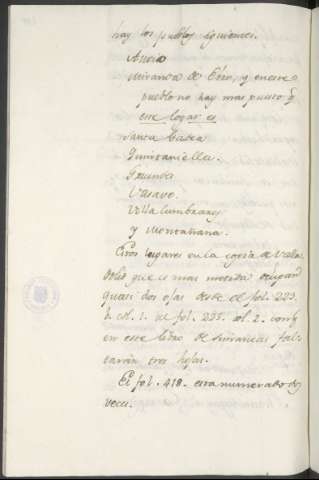 hay los pueblos siguientes.
Ameio
Miranda de Ebro, y en este
pueblo no hay mas puesto q̃
este lugar es
Santa Gadea
Quintaniella.
Guinea
Villa lumbrano
y Montañana.
Estos lugares en la copia de Valla
dolid que es mas metida ocupan
quasi dos ojas desde el fol. 225.
b. col. 1. al fol. 235. col. 2. conq̃
en este libro de Simancas fal-
tarán tres hojas.
El fol. 418. esta numerado dos
veces.